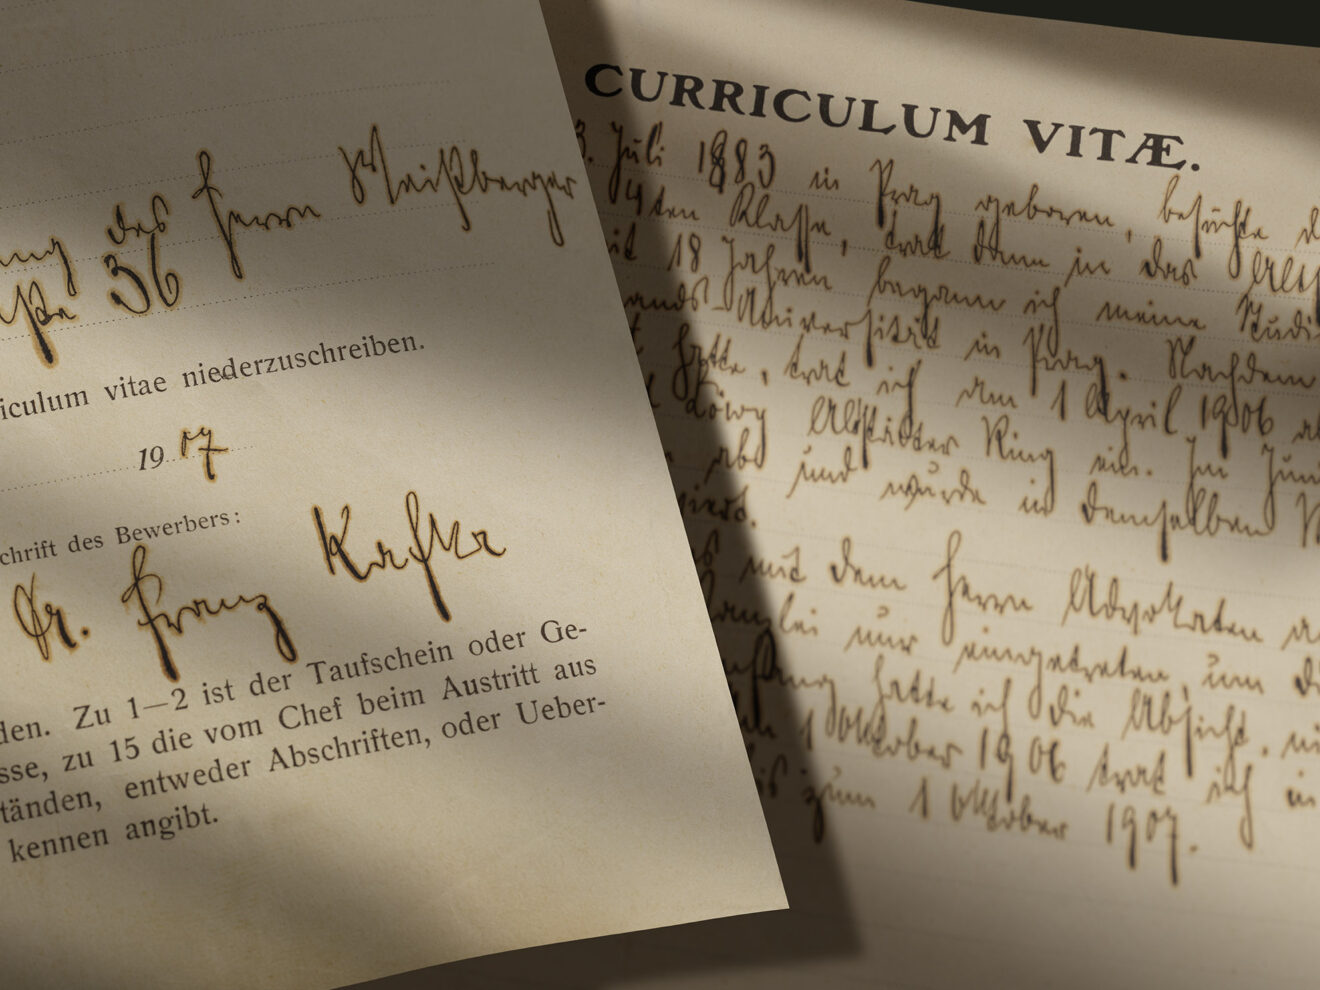 des Herrn Weißberger
36
iculum vitae niederzuschreiben.
1907
schrift des Bewerbers:
Dr. Franz Kafka
den. Zu 1—2 ist der Taufschein oder Ge-
sse, zu 15 die vom Chef beim Austritt aus
tänden, entweder Abschriften, oder Ueber-
kennen angibt.
CURRICULUM VITÆ.
3. Juli 1883 in Prag geboren, besuchte d
4ten Klasse, trat dann in das Altst
it 18 Jahren begann ich meine Studi
ands-Universität in Prag. Nachdem
t hatte, trat ich am 1 April 1906 a
Löwy Altstädter Ring ein. Im Juni
ab und wurde in demselben
viert.
mit dem Herrn Advokaten
Kanzlei nur eingetreten, um di
Anfang hatte ich die Absicht, ni
1 Oktober 1906 trat ich in
bis zum 1 Oktober 1907.